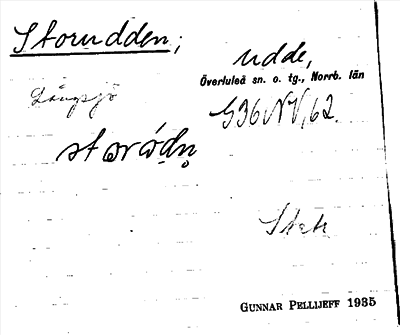 Storudden; udde,
Överluleå sn. o. tg., Norrb. län
Långsjö
G36NV,62.
storódn̥
Stat
GUNNAR PELLIJEFF 1935